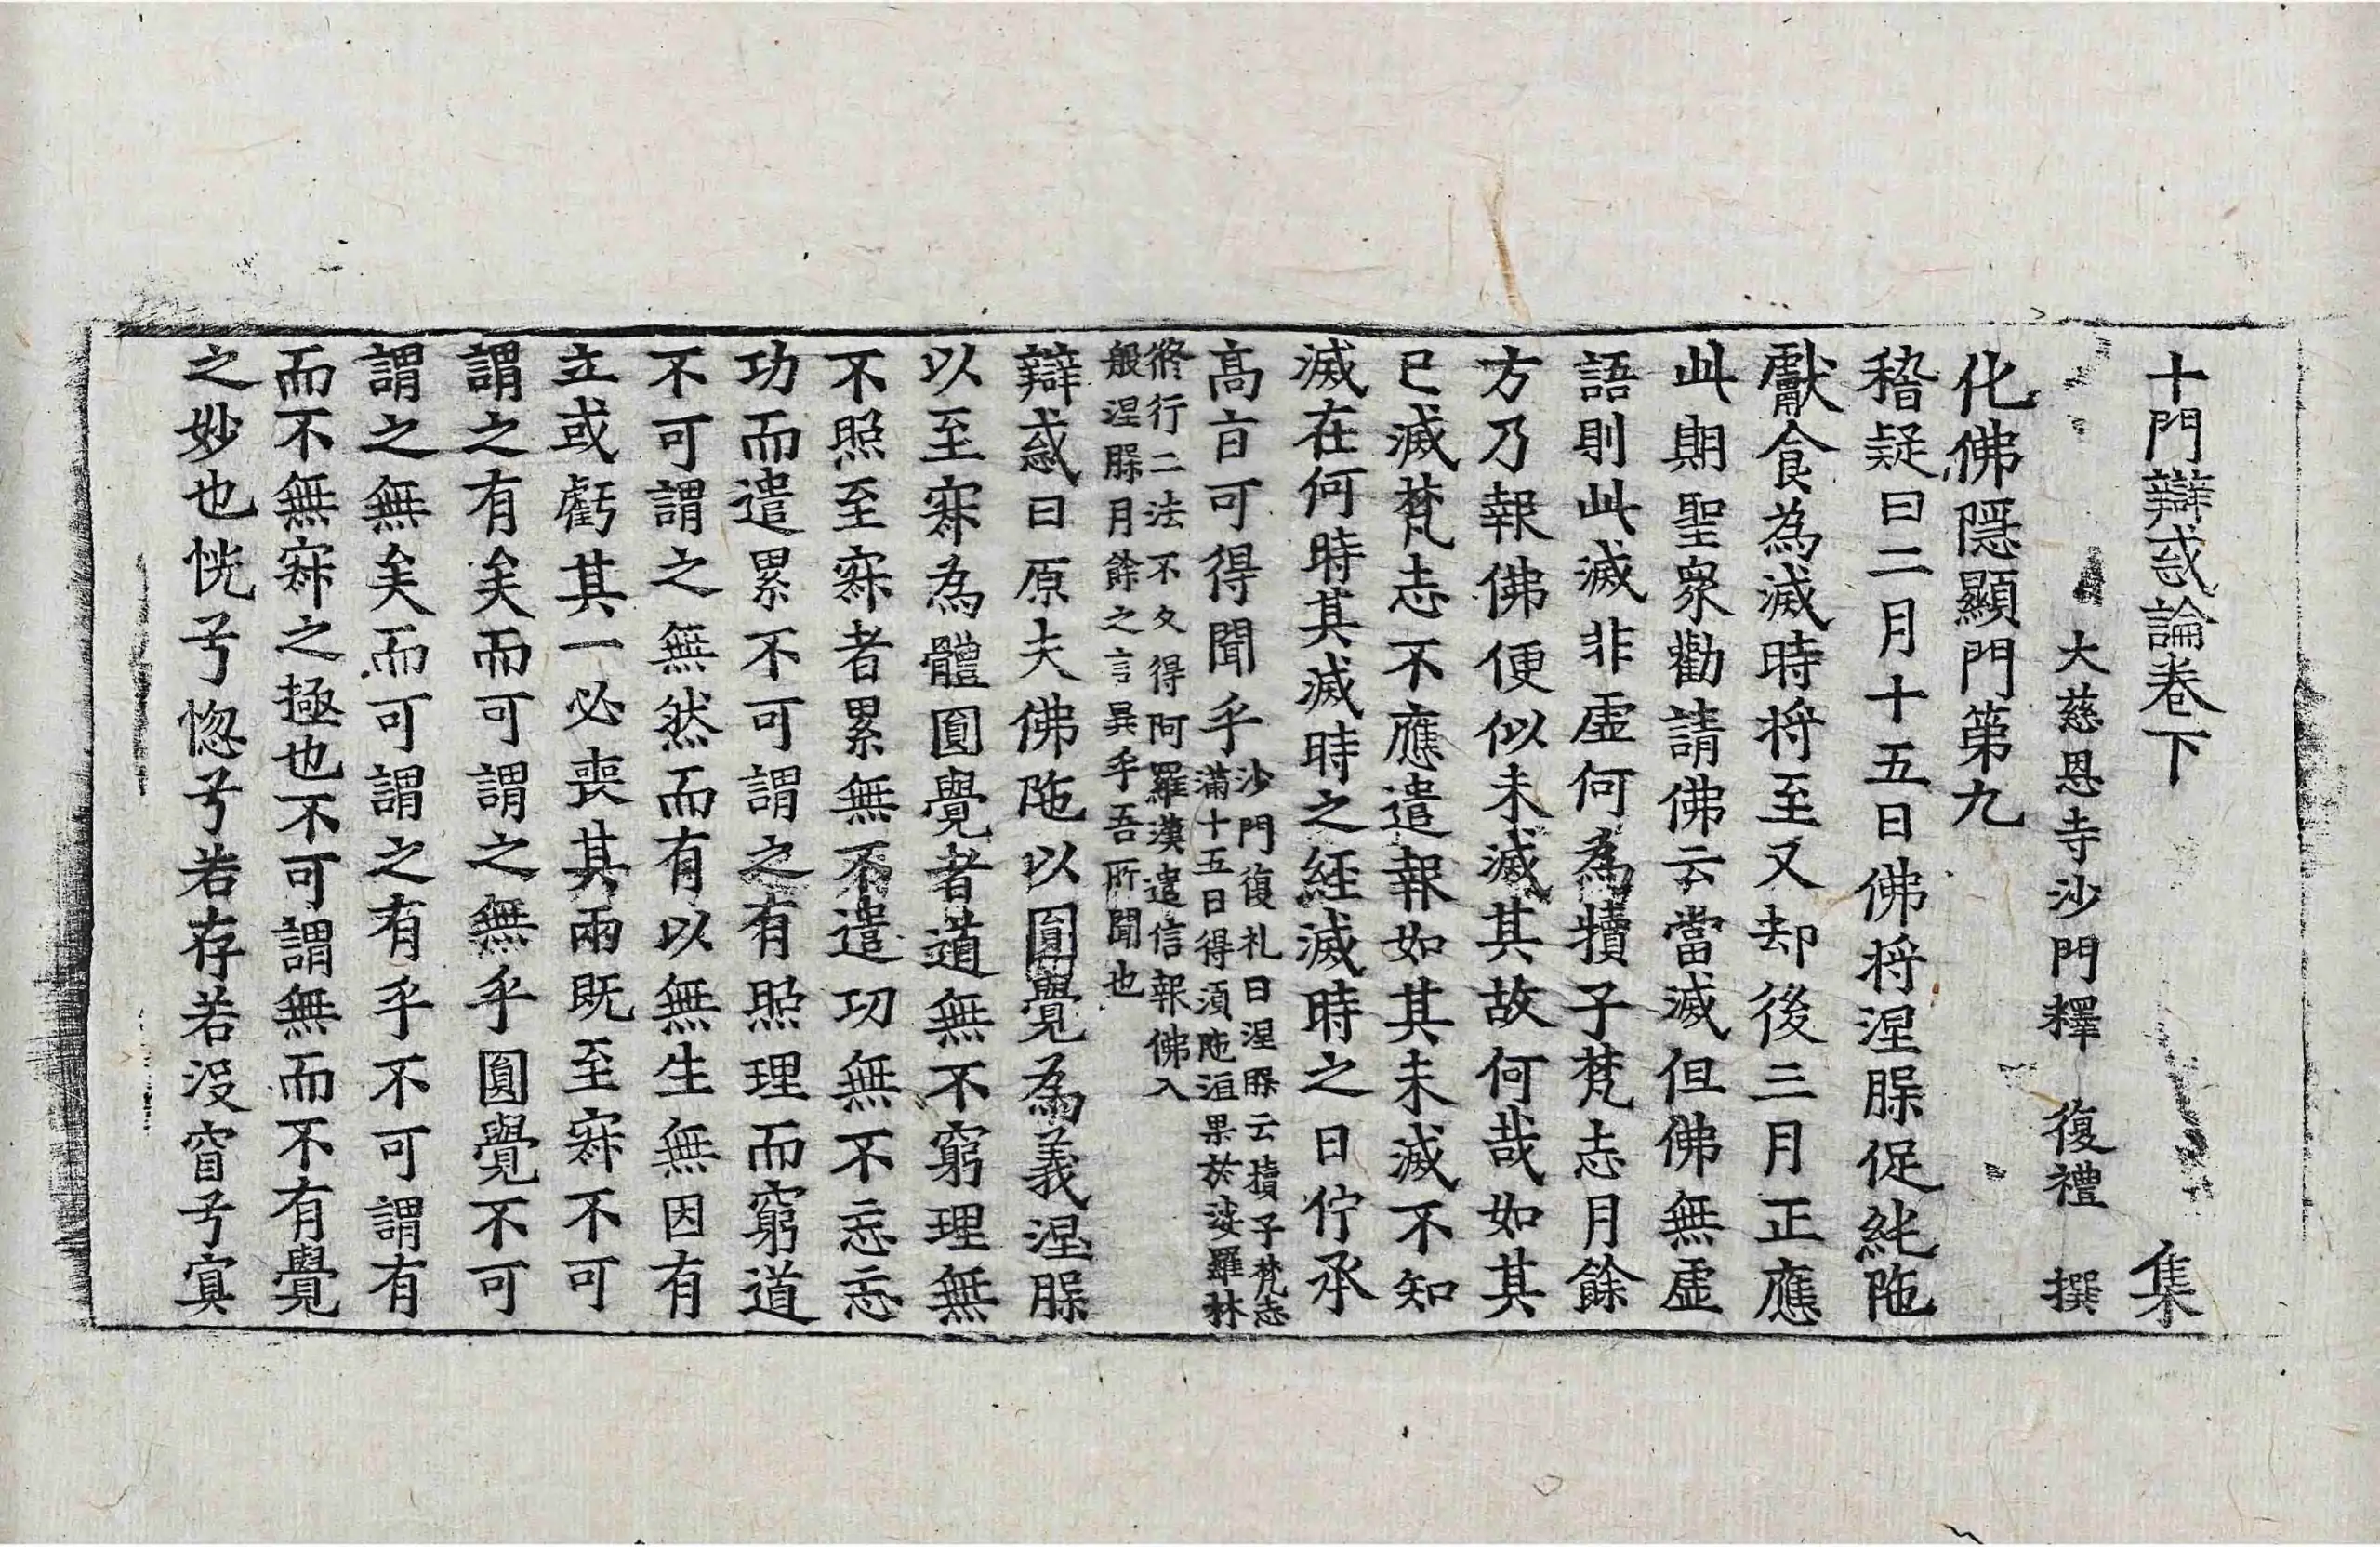 十門辯惑論卷下　集
大慈恩寺沙門釋　復禮　撰
化佛隱顯門第九
稽疑曰二月十五日佛将涅槃促純陁
獻食為滅時将至又却後三月正應
此期聖衆勸請佛云當滅但佛無虛
語則此滅非虛何為犢子梵志月餘
方乃報佛便似未滅其故何哉如其
已滅梵志不應遣報如其未滅不知
滅在何時其滅時之經滅時之日佇承
高旨可得聞乎
沙門復礼曰涅槃云犢子梵志
滿十五日得湏陁洹果於娑羅林
脩行二法不久得阿羅漢遣信報佛入
般涅槃月餘之言異乎吾所聞也
辯惑曰原夫佛陁以圓覺為義涅槃
以至寂為體圓覺者道無不窮理無
不照至寂者累無不遣功無不忘忘
功而遣累不可謂之有照理而窮道
不可謂之無然而有以無生無因有
立或虧其一必喪其兩既至寂不可
謂之有矣而可謂之無乎圓覺不可
謂之無矣而可謂之有乎不可謂有
而不無寂之極也不可謂無而不有覺
之妙也恍兮惚兮若存若没窅兮寘